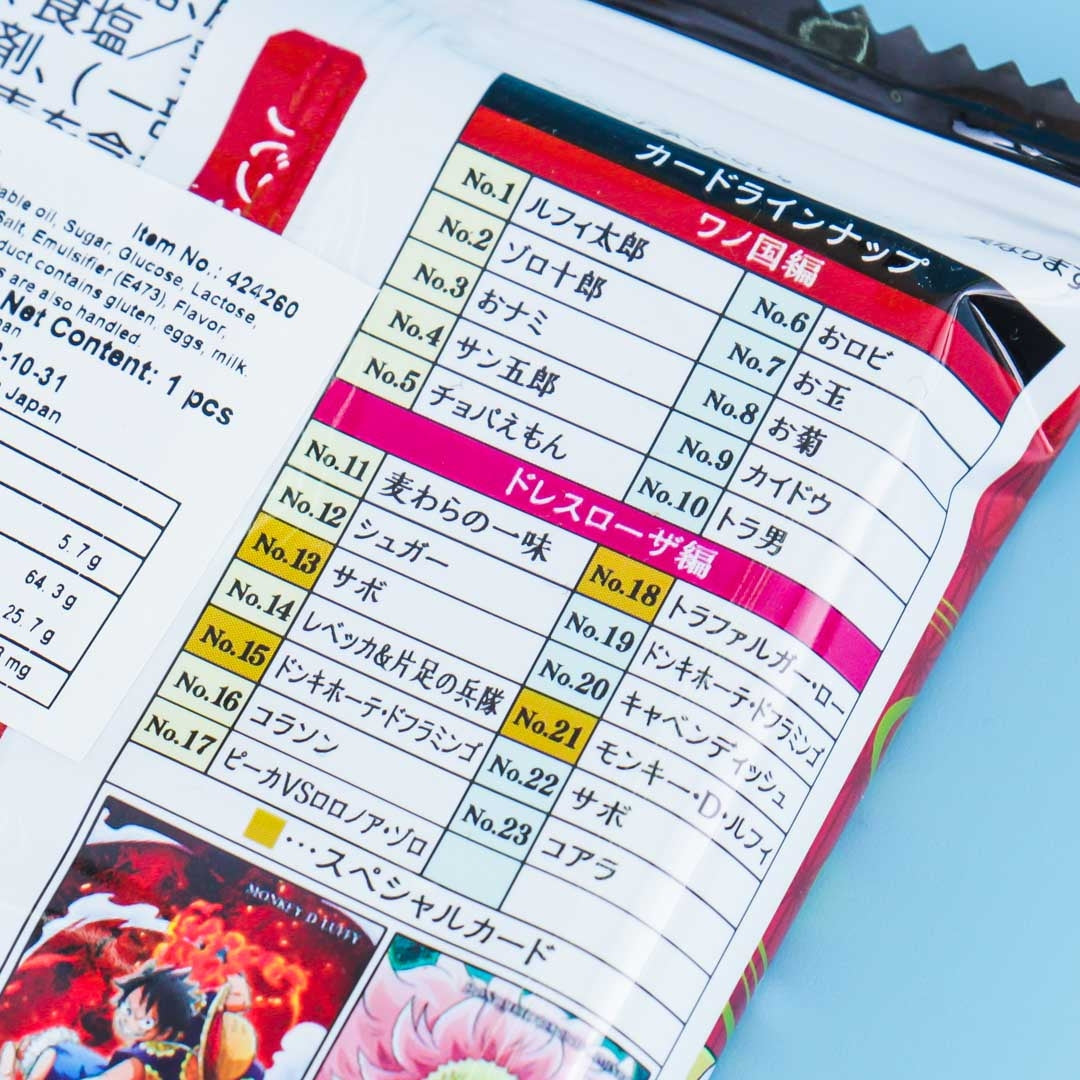 食塩／
剤、(一
able oil, Sugar, Glucose, Lactose,
Salt, Emulsifier (E473), Flavor,
duct contains gluten, eggs, milk.
s are also handled.
Item No.: 424260
Net Content: 1 pcs
-10-31
Japan
5.7g
64.3g
25.7g
mg
カードラインナップ
ワノ国編
No.1 ルフィ太郎
No.2 ゾロ十郎
No.3 おナミ
No.4 サン五郎
No.5 チョパえもん
No.6 おロビ
No.7 お玉
No.8 お菊
No.9 カイドウ
No.10 トラ男
ドレスローザ編
No.11 麦わらの一味
No.12 シュガー
No.13 サボ
No.14 レベッカ&片足の兵隊
No.15 ドンキホーテ・ドフラミンゴ
No.16 コラソン
No.17 ピーカVSロロノア・ゾロ
No.18 トラファルガー・ロー
No.19 ドンキホーテ・ドフラミンゴ
No.20 キャベンディッシュ
No.21 モンキー・D・ルフィ
No.22 サボ
No.23 コアラ
…スペシャルカード
MONKEY D LUFFY